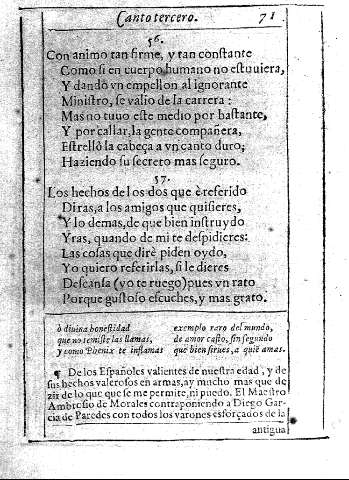 Canto tercero. 71
56.
Con animo tan firme, y tan constante
Como si en cuerpo humano no estuuiera,
Y dandò vn empellon al ignorante
Ministro, se valio de la carrera:
Mas no tuuo este medio por bastante,
Y por callar, la gente compañera,
Estrellò la cabeça a vn canto duro,
Haziendo su secreto mas seguro.
57.
Los hechos de los dos que è referido
Diras, a los amigos que quisieres,
Y lo demas, de que bien instruydo
Yras, quando de mi te despidieres:
Las cosas que dirè piden oydo,
Yo quiero referirlas, si le dieres
Descansa (yo te ruego) pues vn rato
Porque gustoso escuches, y mas grato.
ò diuina honestidad
que no temiste las llamas,
y como Phenix te inflamas
exemplo raro del mundo,
de amor casto, sin segundo
que bien sirues, a quiē amas.
¶ De los Españoles valientes de nuestra edad, y de
sus hechos valerosos en armas, ay mucho mas que de
zir de lo que se me permite, ni puedo. El Maestro
Ambrosio de Morales contraponiendo a Diego Gar-
cia de Paredes con todos los varones esforçados de la
antigua